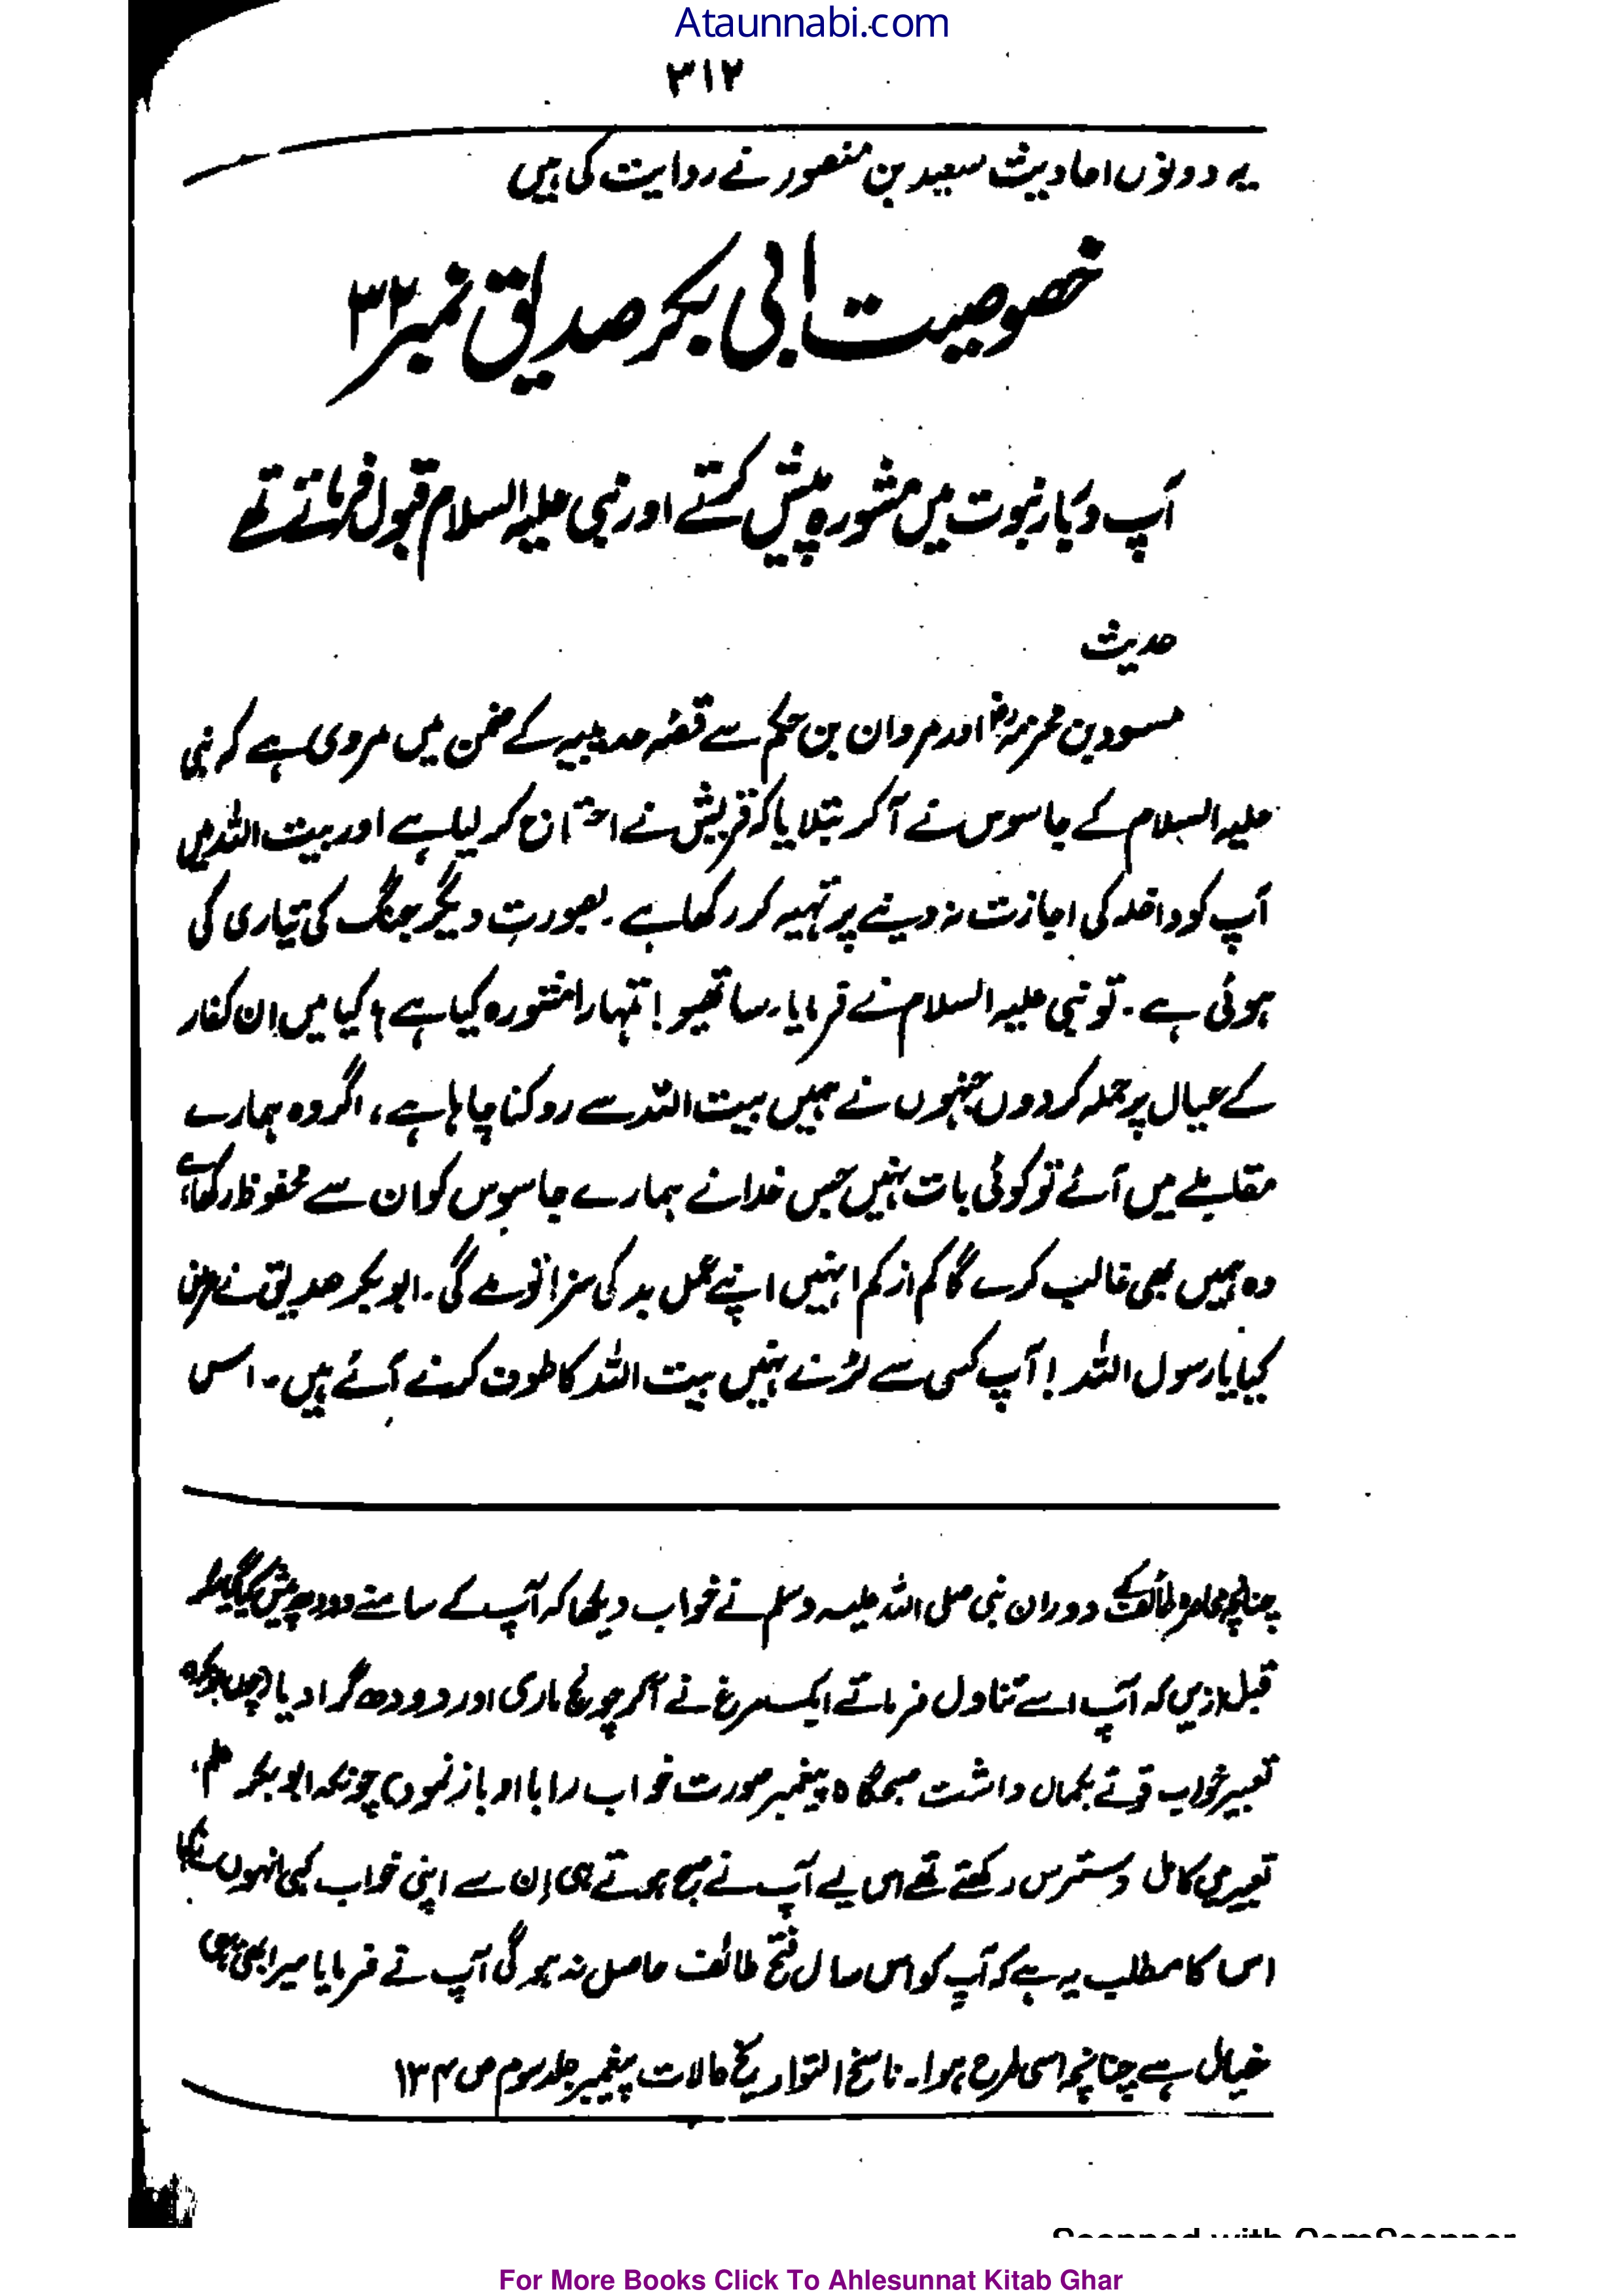 Ataunnabi.com
۳۱۲
یہ دونوں احادیث سعید بن منصور نے روایت کی ہیں
خصوصیت ابی بکر صدیق نمبر ۳۲
آپ دربارِ نبوت میں مشورہ پیش کرتے اور نبی علیہ السلام قبول فرماتے تھے
حدیث
مسور بن مخرمہ رضؓ اور مروان بن حکم سے قصّہ حدیبیہ کے ضمن میں مروی ہے کہ نبی
علیہ السلام کے جاسوس نے آکر بتلایا کہ قریش نے کر لیا ہے اور بیت اللہ میں
آپ کو داخلہ کی اجازت نہ دینے پر تہیہ کر رکھا ہے۔ بصورتِ دیگر جنگ کی تیاری کی
ہوئی ہے۔ تو نبی علیہ السلام نے فرمایا۔ ساتھیو! تمہارا مشورہ کیا ہے؟ کیا میں ان کفار
کے عیال پر حملہ کردوں جنہوں نے ہمیں بیت اللہ سے روکنا چاہا ہے، اگر وہ ہمارے
مقابلے میں آئے تو کوئی بات نہیں جس خدا نے ہمارے جاسوس کو ان سے محفوظ رکھا ہے
وہ ہمیں بھی غالب کرے گا کم از کم انہیں اپنے عمل بد کی سزا تو ملے گی۔ ابوبکر صدیق نے عرض
کیا یا رسول اللہ! آپ کسی سے لڑنے نہیں بیت اللہ کا طوف کرنے آئے ہیں۔ اس
چنانچہ محاصرہ طائف کے دوران نبی صلی اللہ علیہ وسلم نے خواب دیکھا کہ آپ کے سامنے دودھ پیش کیا گیا
قبل ازیں کہ آپ اسے تناول فرماتے ایک مرغ نے آکر چونچ ماری اور دودھ گرا دیا (چوں ابوبکر
تعبیر خواب قوتے بکمال داشت صبحگاہ پیغمبر صورت خواب را با او باز نمود) چونکہ ابوبکر علم
تعبیر میں کامل دسترس رکھتے تھے اس لیے آپ نے صبح ہوتے ہی ان سے اپنی خواب کہی انہوں نے کہا
اس کا مطلب یہ ہے کہ آپ کو اس سال فتح طائف حاصل نہ ہوگی آپ نے فرمایا میرا بھی یہی
خیال ہے چنانچہ اسی طرح ہوا۔ ناسخ التواریخ حالات پیغمبر جلد سوم ص ۱۳۴
Scanned with CamScanner
For More Books Click To Ahlesunnat Kitab Ghar